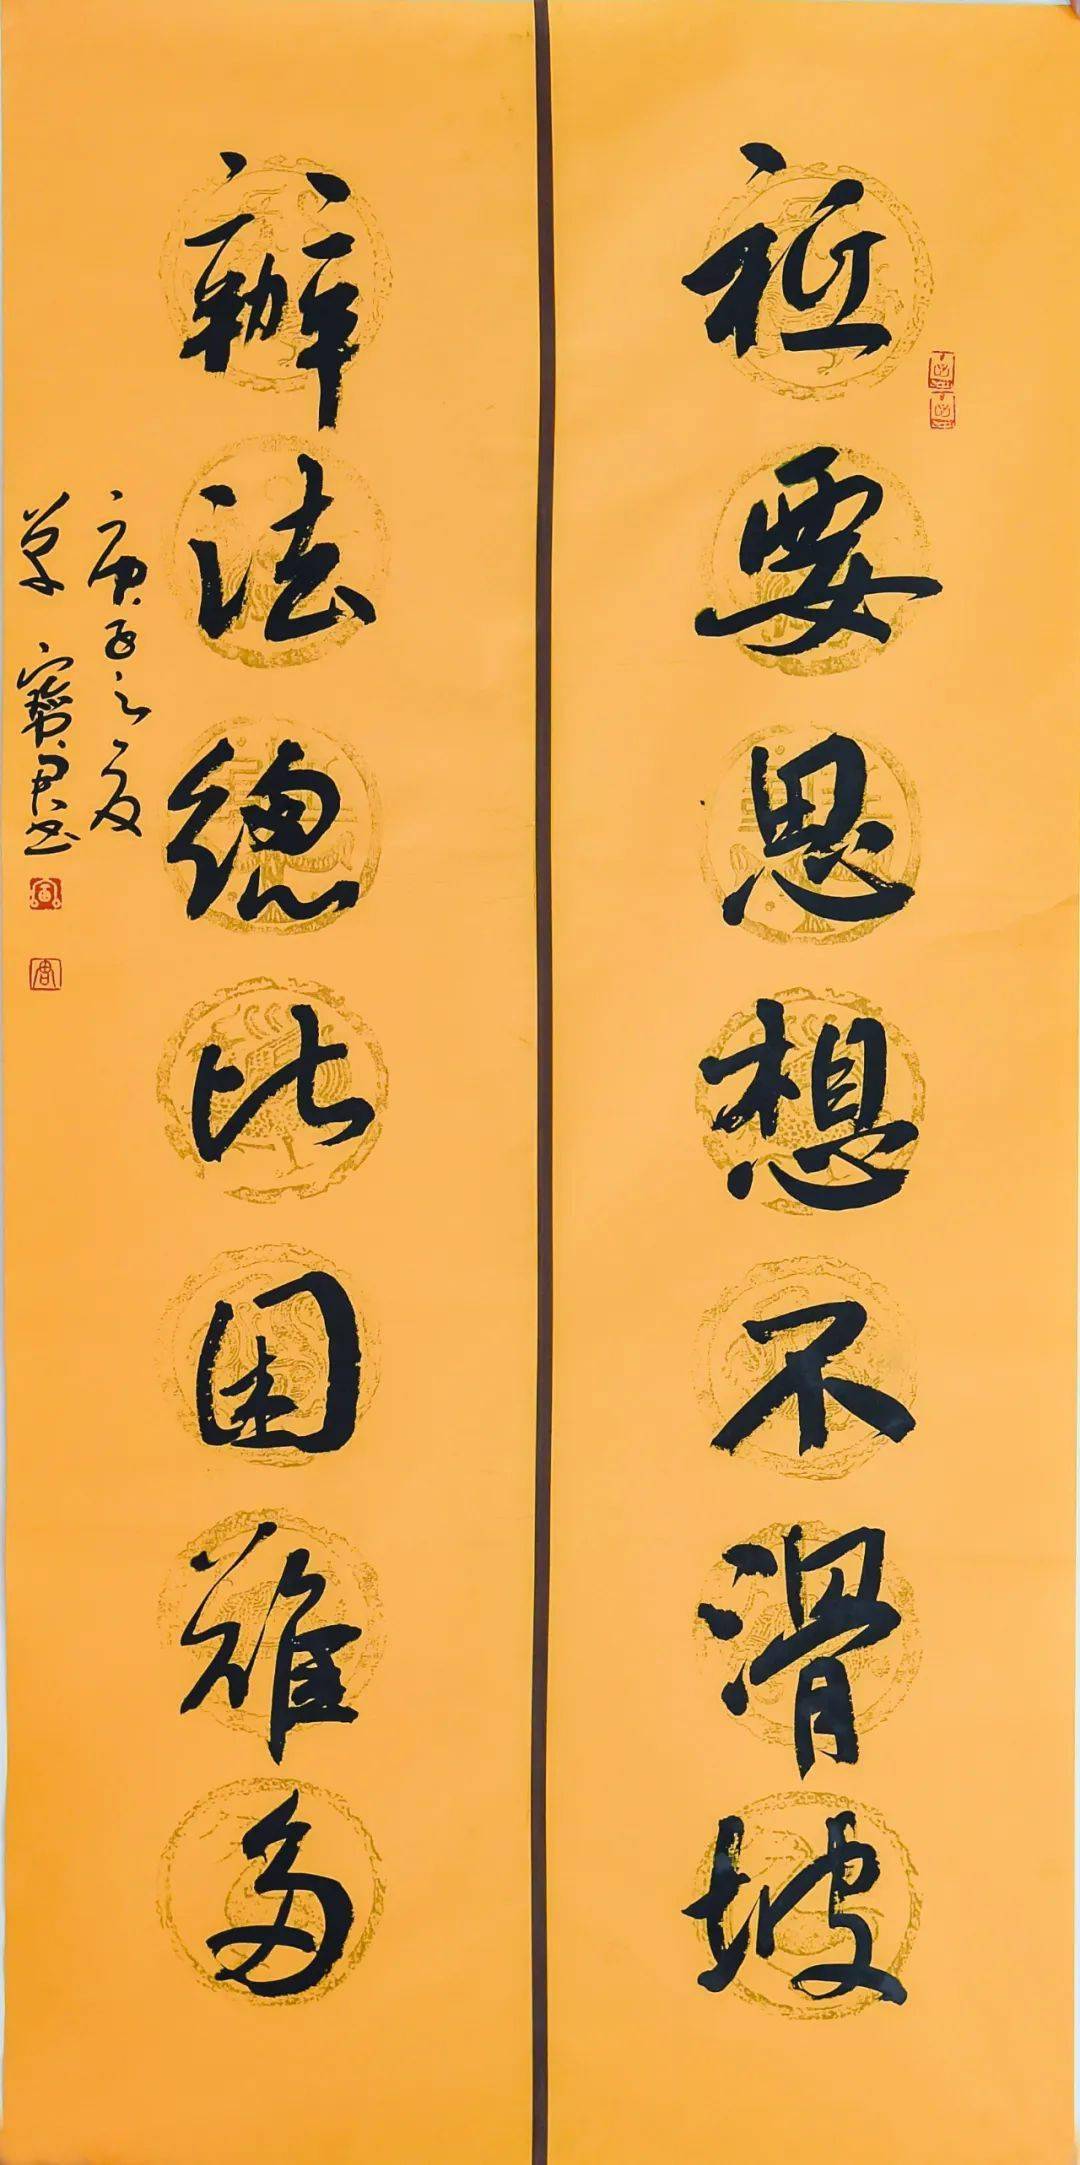 祗要思想不滑坡
辦法總比困難多
庚子之夏
寶君书